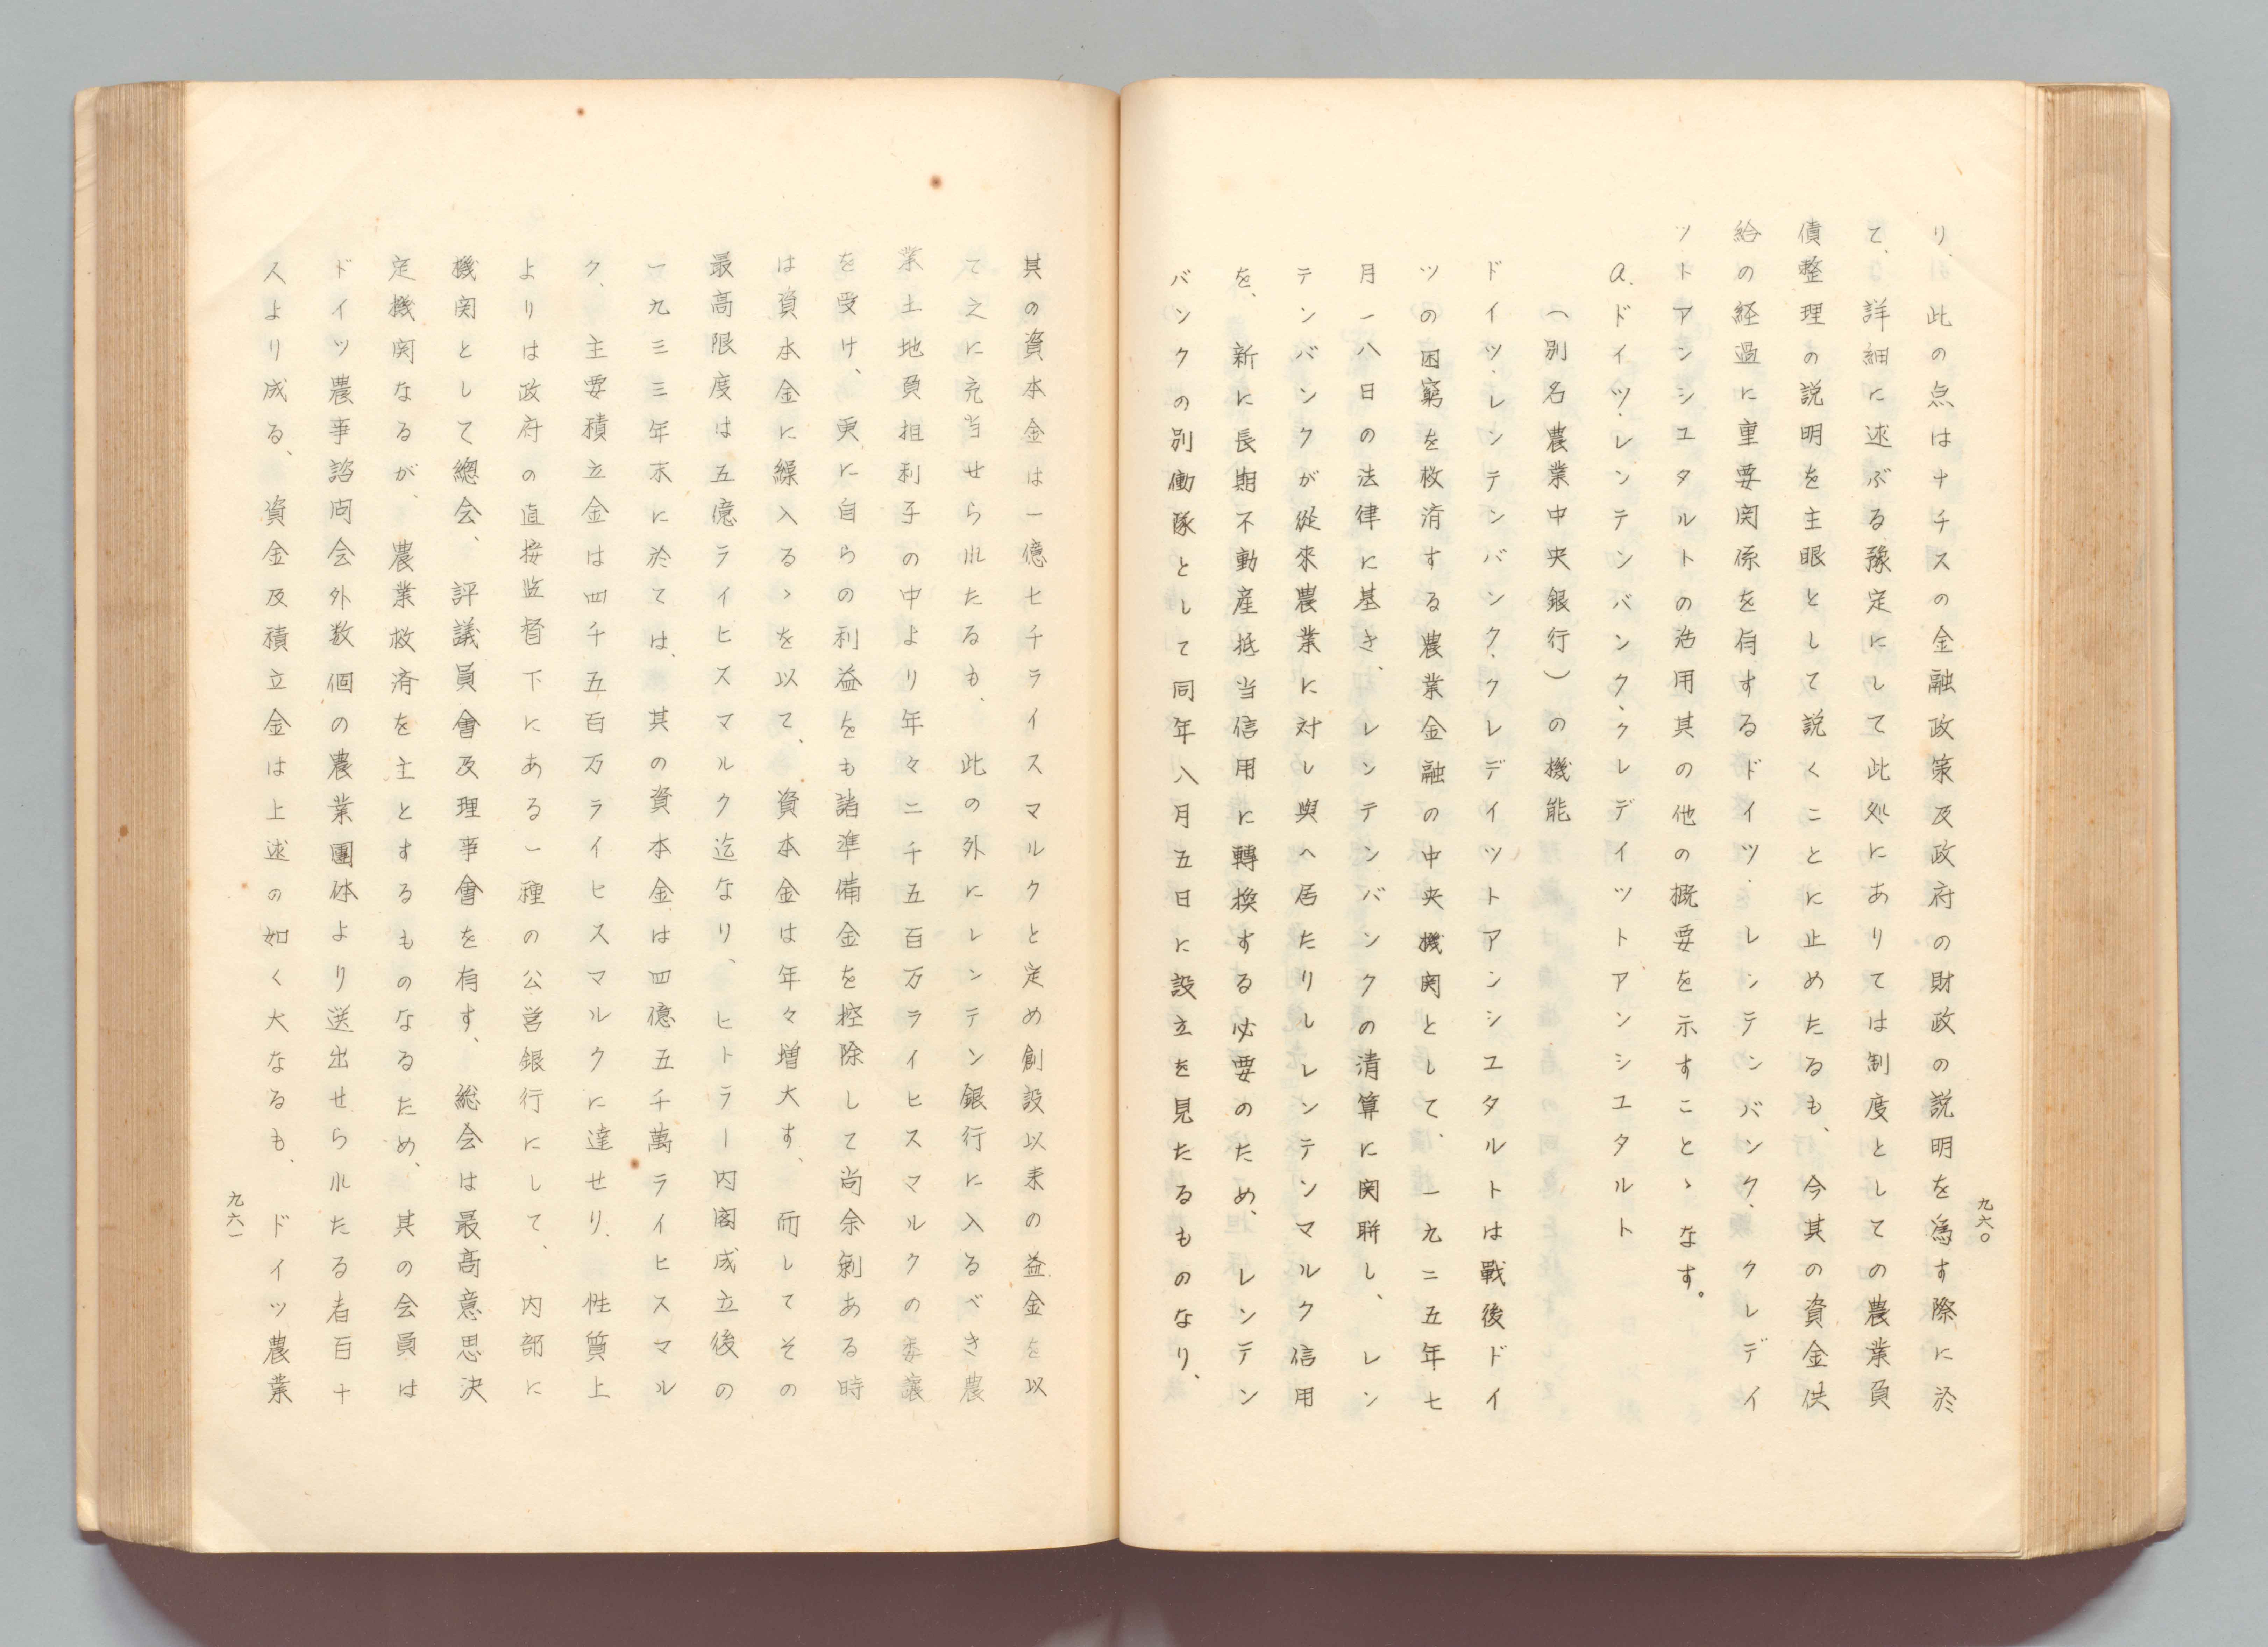 九六〇
り、此の点はナチスの金融政策及政府の財政の説明を為す際に於
て、詳細に述ぶる豫定にして此処にありては制度としての農業負
債整理の説明を主眼として説くことに止めたるも、今其の資金供
給の経過に重要関係を有するドイツ・レンテンバンク・クレデイ
ツトアンシユタルトの活用其の他の概要を示すことゝなす。
a.ドイツ・レンテンバンク・クレデイツトアンシユタルト
（別名農業中央銀行）の機能
ドイツ・レンテンバンク・クレデイツトアンシユタルトは戰後ドイ
ツの困窮を救済する農業金融の中央機関として、一九二五年七
月一八日の法律に基き、レンテンバンクの清算に関聨し、レン
テンバンクが從來農業に対し與へ居たりしレンテンマルク信用
を、新に長期不動産抵当信用に轉換する必要のため、レンテン
バンクの別働隊として同年八月五日に設立を見たるものなり、
其の資本金は一億七千ライスマルクと定め創設以来の益金を以
て之に充当せられたるも、此の外にレンテン銀行に入るべき農
業土地負担利子の中より年々二千五百万ライヒスマルクの委譲
を受け、更に自らの利益をも諸準備金を控除して尚余剰ある時
は資本金に繰入るゝを以て、資本金は年々増大す、而してその
最高限度は五億ライヒスマルク迄なり、ヒトラー内閣成立後の
一九三三年末に於ては、其の資本金は四億五千萬ライヒスマル
ク、主要積立金は四千五百万ライヒスマルクに達せり、性質上
よりは政府の直接監督下にある一種の公営銀行にして、内部に
機関として總会、評議員會及理事會を有す、総会は最高意思決
定機関なるが、農業救済を主とするものなるため、其の会員は
ドイツ農事諮問会外数個の農業團体より送出せられたる者百十
人より成る、資金及積立金は上述の如く大なるも、ドイツ農業
九六一